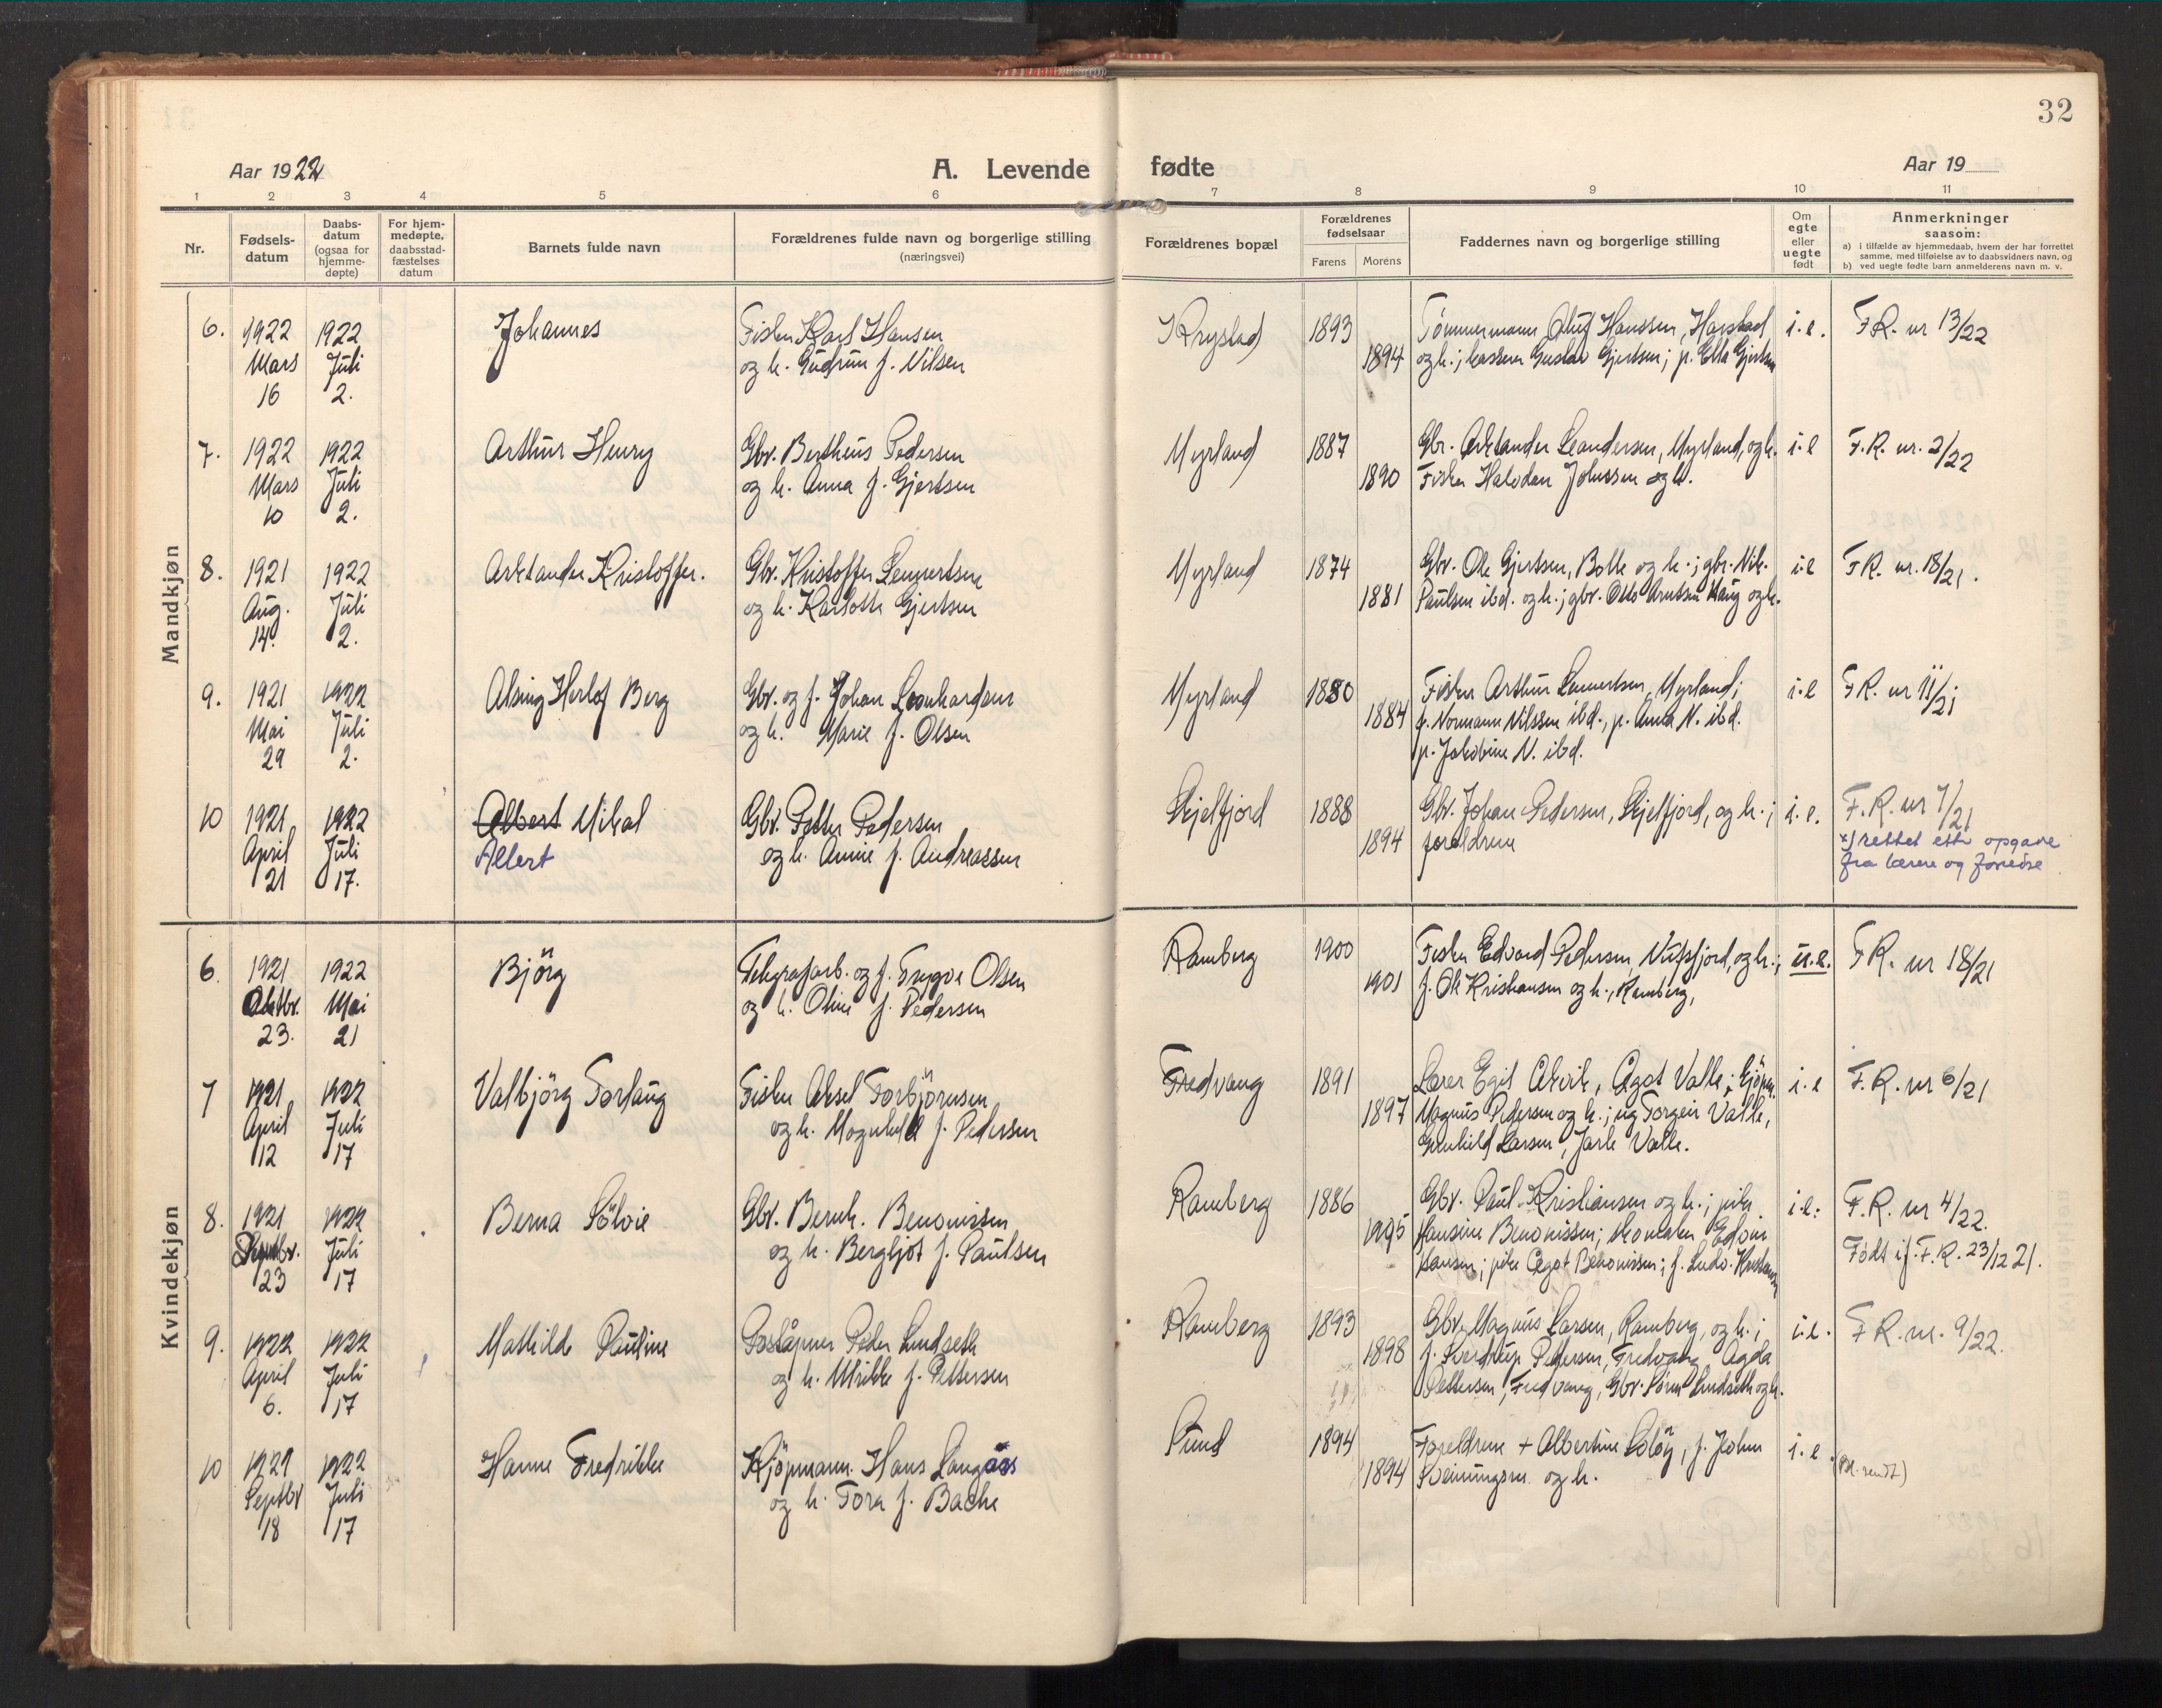 32
Aar 1922
A. Levende
fødte
Aar 19
1 2 3 4 5 6 7 8 9 10 11
Nr.
Fødsels-
datum
Daabs-
datum
(ogsaa for
hjemme-
døpte)
For hjem-
medøpte,
daabsstad-
fæstelses
datum
Barnets fulde navn
Forældrenes fulde navn og borgerlige stilling
(næringsvei)
Forældrenes bopæl
Forældrenes
fødselsaar
Farens Morens
Faddernes navn og borgerlige stilling
Om
egte
eller
uegte
født
Anmerkninger
saasom:
a) i tilfælde av hjemmedaab, hvem der har forrettet
samme, med tilføielse av to daabsvidners navn, og
b) ved uegte fødte barn anmelderens navn m. v.
Mandkjøn
6. 1922 1922 Johannes Fisker Karl Hansen Krystad 1893 Tömmermann Oluf Hanssen, Harstad i.e. F.R. nr 13/22
Mars Juli og h. Gudrun f. Nilsen 1894 og h.; Gustav Gjertsen; p. Gjertsen
16 2.
7. 1922 1922 Arthur Henry Gbr. Bertheus Pedersen Myrland 1887 Gbr. Arktander Leandersen, Myrland, og h. i.e F.R. nr. 2/22
Mars Juli og h. Anna f. Gjertsen 1890 Fisker Halvdan Johnssen og h.
10 2.
8. 1921 1922 Arktander Kristoffer. Gbr. Kristoffer Lennertsen Myrland 1874 Gbr. Ole Gjertsen, Bolle og h.; gbr. Nik. i.e F.R. nr. 18/21.
Aug. Juli og h. Karlotte Gjertsen 1881 Paulsen ibd. og h.; gbr. Otto Arntsen Haug og h.
14. 2.
9. 1921 1922 Alsing Herlof Berg Gbr. og f. Johan Leonhardsen Myrland 1880 Fisker Arthur Lennertsen, Myrland; i.e F.R. nr 11/21
Mai Juli og h. Marie f. Olsen 1884 f. Normann Nilssen ibd., p. Anna N. ibd.
29 2. p. Jakobine N. ibd.
10 1921 1922 Albert Mikal Gbr. Petter Pedersen Skjelfjord 1888 Gbr. Johan Pedersen, Skjelfjord, og h.; i.e. F.R. nr 7/21
April Juli Allert og h. Annie f. Andreassen 1894 foreldrene x) rettet efter opgave
21 17. fra lærer og
Kvindekjøn
6. 1921 1922 Björg Telegrafarb. og f. Trygve Olsen Ramberg 1900 Fisker Edvard Pedersen, Nufsfjord, og h.; u.e. F.R. nr 18/21
Oktbr. Mai og h. Oline f. Pedersen 1901 f. Ole Kristiansen og h., Ramberg,
23. 21
7 1921 1922 Valbjörg Torlaug Fisker Aksel Torbjörnsen Fredvang 1891 Lærer Egil Alvik, Ågot Valle; Kjöpm. i.e F.R. nr 6/21
April Juli og h. Magnhild f. Pedersen 1897 Magnus Pedersen og h.; ug Torgeir Valle,
12 17 Gunhild Larsen, Jarle Valle.
8. 1921 1922 Berna Sölvie Gbr. Bernh. Benonissen Ramberg 1886 Gbr. Paul Kristiansen og h.; pike i.e: F.R. nr 4/22.
Juli og h. Bergljot f. Paulsen 1905 Hansine Benonissen; Edvin Födt if. F.R. 23/12 21.
23 17 Hansen; pike Ågot Benonissen; f. Ludv. Kristiansen
9. 1922 1922 Mathilde Pauline Poståpner Peder Lundseth Ramberg 1893 Gbr. Magnus Larsen, Ramberg, og h.; i.e. F.R. nr. 9/22.
April Juli og h. Ulrikke f. Pettersen 1898 f. Sverdrup Pedersen, Fredvang, Agda
6. 17 Pettersen, Fredvang, Gbr. Sören Lundseth og h.
10 1921 1922 Hanne Fredrikke Kjöpmann Hans Langås Sund 1894 Foreldrene + Albertine Solöy, f. Johan i.e. (Bl. sendt)
Septbr Juli og h. Tora f. Bache 1894 Sveinungsen og h.
18 17